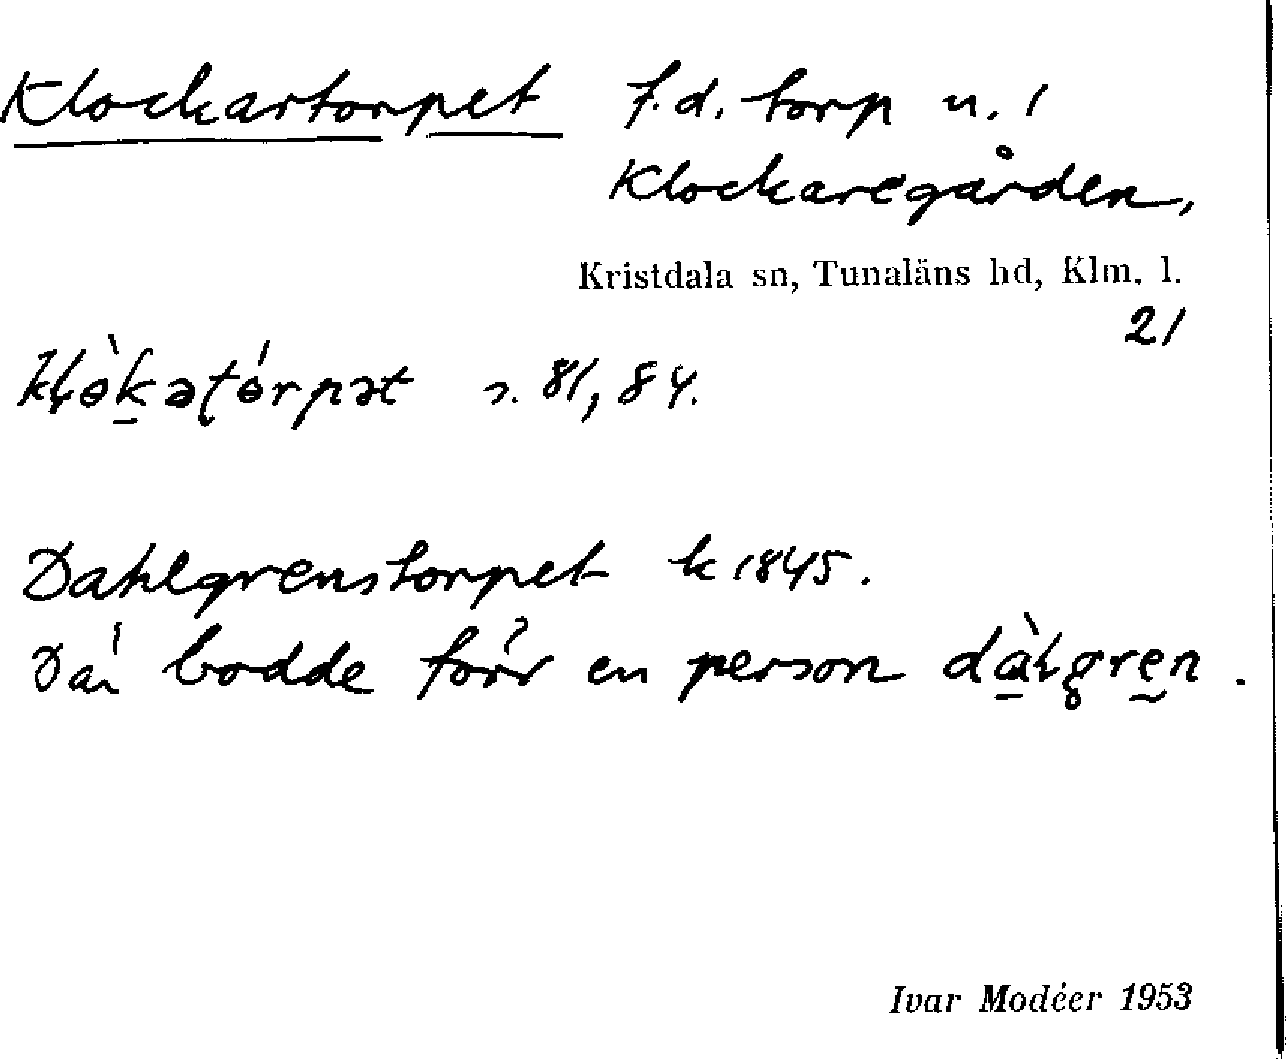 Klockartorpet f.d. torp u. 1
Klockaregården,
Kristdala sn, Tunaläns hd, Klm. l.
21
s. 81, 84.
Dahlgrenstorpet k 1845.
Där bodde förr en person dàlgren.
Ivar Modéer 1953